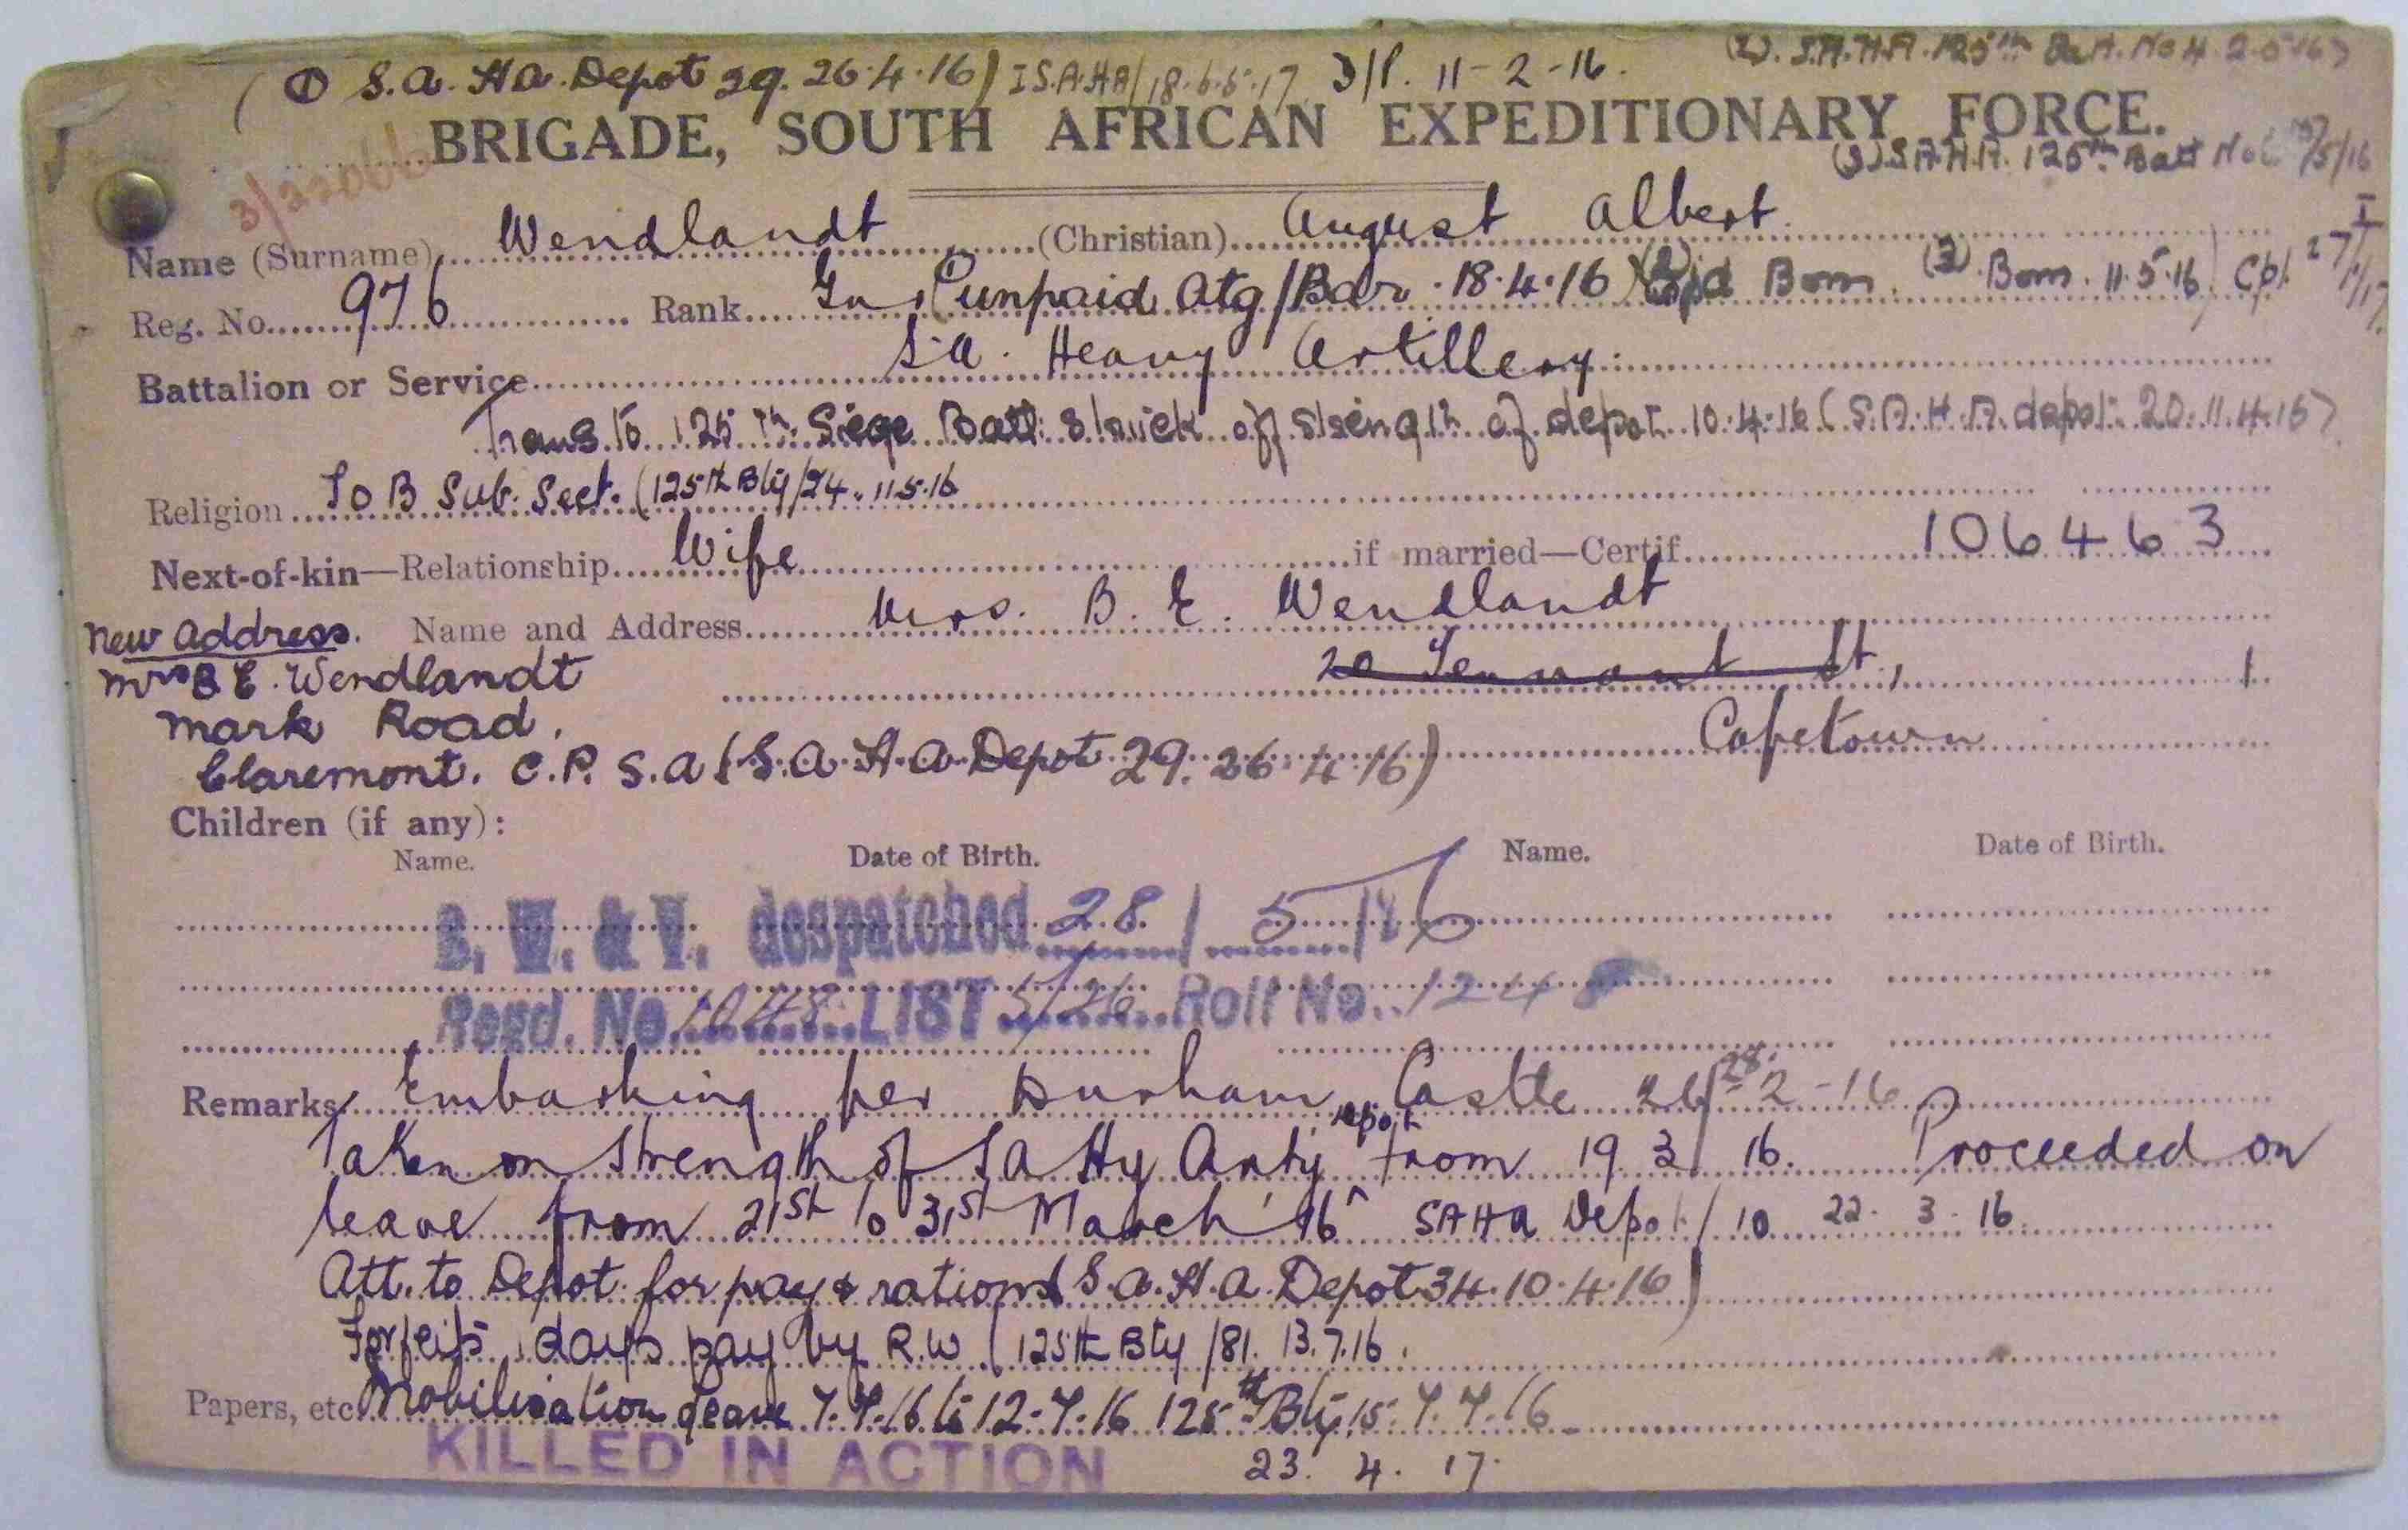 (① S.A. H.A. Depot 29. 26.4.16) I S.A.HA/18.6.5.17 3/P. 11-2-16. (2). S.A.H.A. 125th Batt. No 4. 2.5.16)
BRIGADE, SOUTH AFRICAN EXPEDITIONARY FORCE.
(3) S.A.H.A. 125th Batt No /5/16
Name (Surname) Wendlandt (Christian) August Albert
Reg. No. 976 Rank Gnr (unpaid Atg/Bdr. 18.4.16) (2) Bom. (3) Bom. 11.5.16) Cpl. 27/1/17.
Battalion or Service S.A. Heavy Artillery.
Trans to 125th Siege Batt: struck off strength of depot 10.4.16 (S.A.H.A. depot 20. 11.4.16)
Religion To B Sub. Sect. (125th Bty/24. 11.5.16
Next-of-kin—Relationship Wife if married—Certif. 106463
New Address. Name and Address Mrs. B. E. Wendlandt
Mrs B E. Wendlandt 20 Tennant St.,
Mark Road, Capetown
Claremont. C.P. S.A (S.A.H.A. Depot 29. 26.4.16)
Children (if any):
Name. Date of Birth. Name. Date of Birth.
B. W. & V. despatched 28/5/
Regd. No. 1048 LIST 5/26 Roll No. 124
Remarks Embarking per Durham Castle 28-2-16
Taken on strength of SA Hy Arty depot from 19.3.16. Proceeded on
leave from 21st to 31st March '16 SAHA Depot/10 22.3.16
Att. to Depot for pay & rations (S.A.H.A. Depot 34. 10.4.16)
Forfeits 1 days pay by R.W (125th Bty/81. 13.7.16.
Papers, etc. Mobilisation leave 7.7.16 to 12.7.16 125th Bty 15. 7.7.16
KILLED IN ACTION 23. 4. 17.